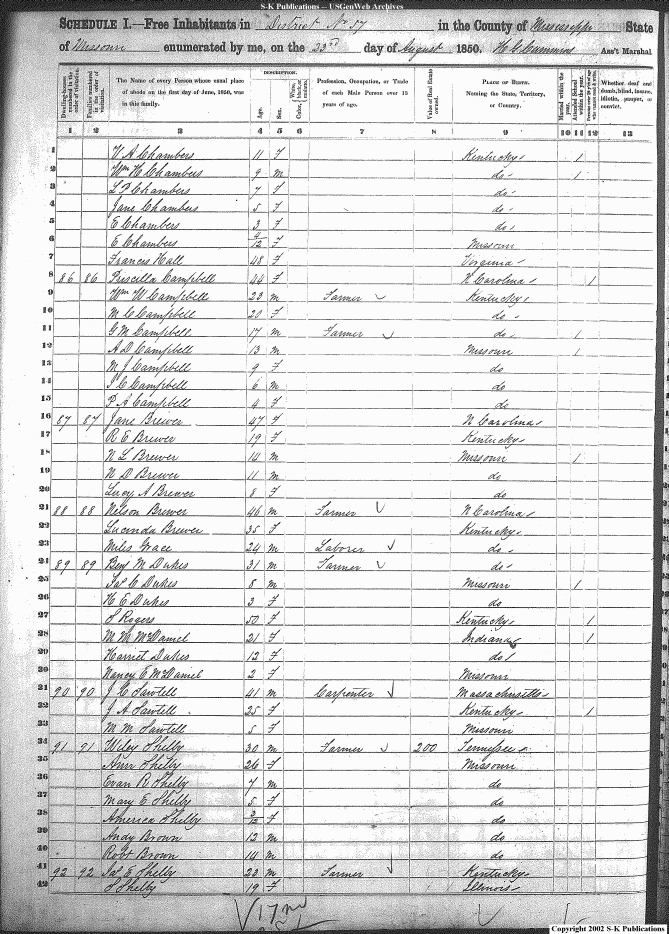 S-K Publications -- USGenWeb Archives
SCHEDULE I.—Free Inhabitants in District No 57 in the County of Mississippi State
of Missouri enumerated by me, on the 23rd day of August 1850. Ass't Marshal
Dwelling-houses numbered in the order of visitation. Families numbered in the order of visitation. The Name of every Person whose usual place of abode on the first day of June, 1850, was in this family. DESCRIPTION. Age. Sex. Color, White, black, or mulatto. Profession, Occupation, or Trade of each Male Person over 15 years of age. Value of Real Estate owned. PLACE OF BIRTH. Naming the State, Territory, or Country. Married within the year. Attended School within the year. Whether deaf and dumb, blind, insane, idiotic, pauper, or convict.
1 2 3 4 5 6 7 8 9 10 11 12 13
1 Chambers 11 F Kentucky 1
2 Wm H Chambers 9 m do 1
3 L P Chambers 7 F do
4 Jane Chambers 5 F do
5 E Chambers 3 F do
6 E Chambers 4/12 F Missouri
7 Frances Hall 48 F Virginia
8 86 86 Priscilla Campbell 44 F N Carolina 1
9 Wm W Campbell 23 m Farmer Kentucky
10 M C Campbell 20 F do
11 G M Campbell 17 m Farmer do 1
12 A D Campbell 13 m Missouri 1
13 M J Campbell 9 F do
14 Campbell 6 m do
15 P A Campbell 4 F do
16 87 87 Jane Brewer 47 F N Carolina
17 R E Brewer 19 F Kentucky
18 N L Brewer 14 m Missouri 1
19 N D Brewer 11 m do
20 Lucy A Brewer 8 F do
21 88 88 Nelson Brewer 46 m Farmer N Carolina
22 Lucinda Brewer 35 F Kentucky
23 Miles 24 m Laborer do
24 89 89 Benj M Dukes 31 m Farmer do
25 Dukes 8 m Missouri 1
26 H E Dukes 3 F do
27 S Rogers 50 F Kentucky 1
28 M M McDaniel 21 F Indiana 1
29 Harriet Dukes 12 F do
30 Nancy E McDaniel 2 F Missouri
31 90 90 J C Sawtell 41 m Carpenter Massachusetts
32 J A Sawtell 25 F Kentucky 1
33 M M Sawtell 5 F Missouri
34 91 91 Wiley Shelby 30 m Farmer 200 Tennessee
35 Ann Shelby 26 F Missouri
36 Evan R Shelby 7 m do
37 Mary E Shelby 5 F do
38 America Shelby F do
39 Andy Brown 12 m do
40 Robt Brown 14 m do
41 92 92 Shelby 23 m Farmer Kentucky
42 S Shelby 19 F Illinois
17 m
Copyright 2002 S-K Publications